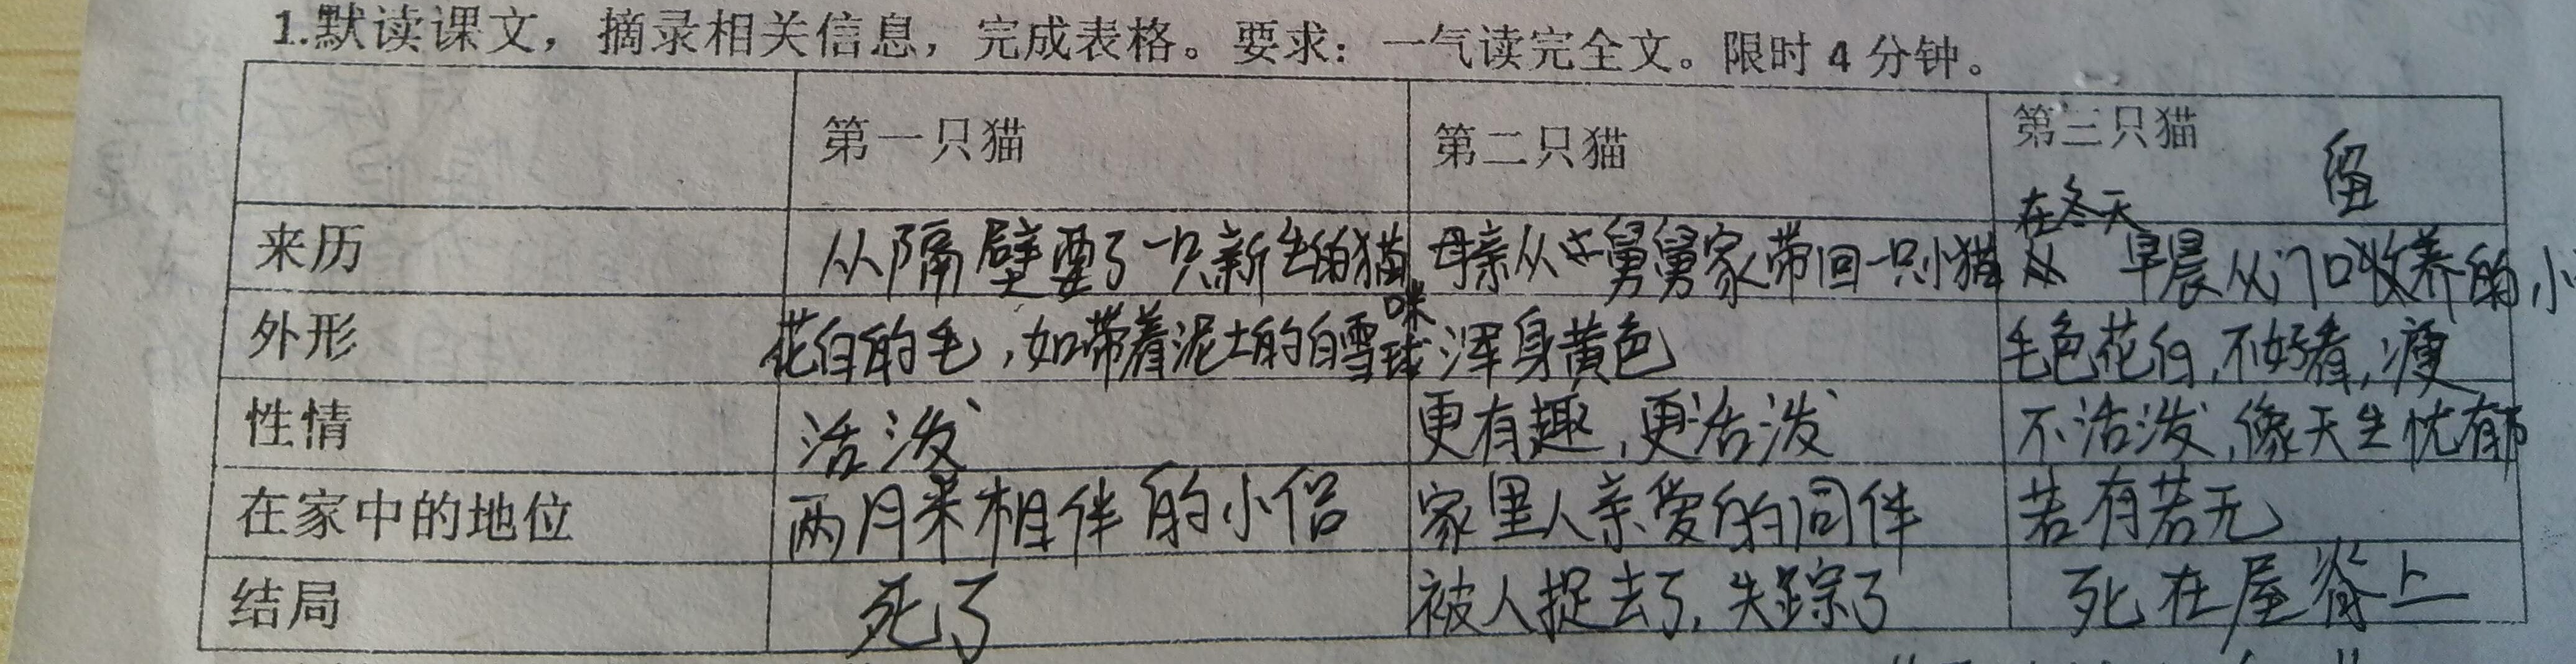 1.默读课文，摘录相关信息，完成表格。要求：一气读完全文。限时 4 分钟。
第一只猫 第二只猫 第三只猫 留
来历 从隔壁要了一只新生的猫咪 母亲从 舅舅家带回一只小猫 在冬天早晨从门口收养的小
外形 花白的毛，如带着泥土的白雪球 浑身黄色 毛色花白，不好看，瘦
性情 活泼 更有趣，更活泼 不活泼，像天生忧郁
在家中的地位 两月来相伴的小侣 家里人亲爱的同伴 若有若无
结局 死了 被人捉去了，失踪了 死在屋脊上